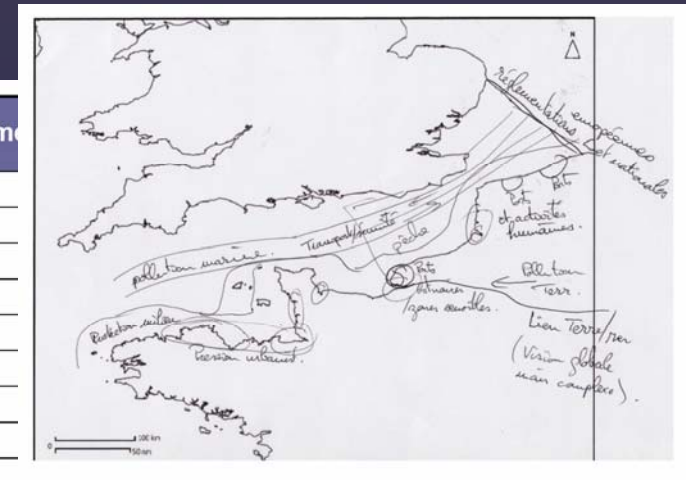 me
N
réglementations européennes
et nationales
Ports
Ports
et activités
humaines.
Transports/Sécurité
pêche
pollution marine.
Ports
Estuaires
/zones sensibles.
Pollution
Terr.
Lien Terre/mer
(Vision globale
mais complexe).
Protection milieu
Pression urbaine.
0
100 km
50 nm